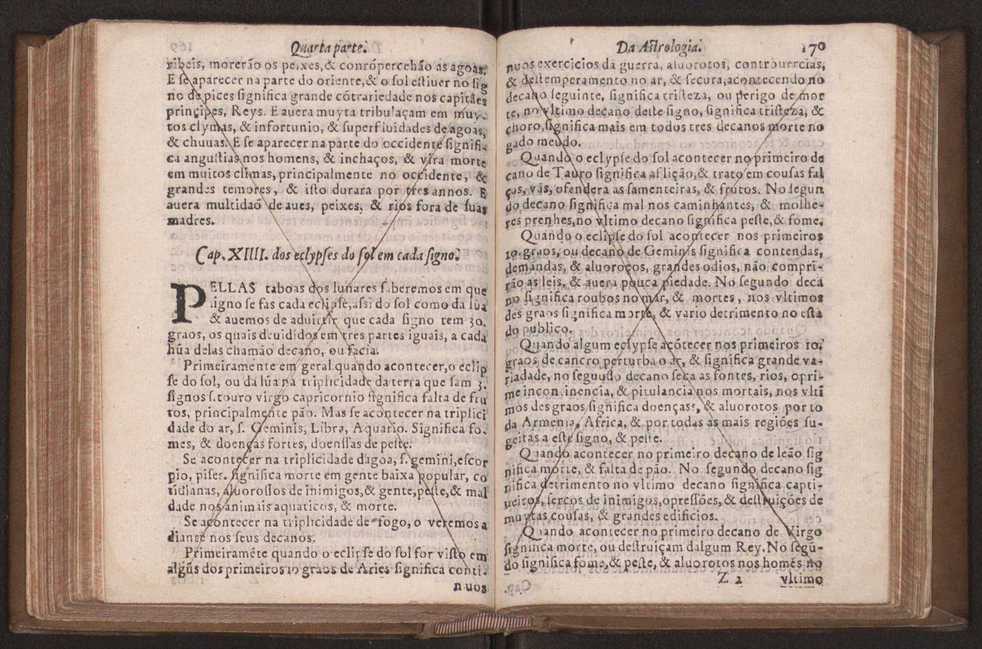 Quarta parte.
ribeis, morerão os peixes, & conrópercehão as agoas.
E se aparecer na parte do oriente, & o sol estiuer no sig
no de pices significa grande cótrariedade nos capitães
principes, Reys. E auera muyta tribulaçam em muy-
tos clymas, & infortunio, & superfluidades de agoas,
& chuuas. E se aparecer na parte do occidente signifi-
ca angustias nos homens, & inchaços, & vira morte
em muitos climas, principalmente no occidente, &
grandes temores, & isto durara por tres annos. E
auera multidaõ de aues, peixes, & rios fora de suas
madres.
Cap. XIIII. dos eclypses do sol em cada signo.
PELLAS taboas dos lunares saberemos em que
signo se fas cada eclipse, assi do sol como da lúa
& auemos de aduirtir que cada signo tem 30.
graos, os quais deuididos em tres partes iguais, a cada
húa delas chamão decano, ou facia.
Primeiramente em geral quando acontecer, o eclip
se do sol, ou da lúa na triplicidade da terra que sam 3.
signos s. touro virgo capricornio significa falta de fru
tos, principalmente pão. Mas se acontecer na triplici
dade do ar, s. Geminis, Libra, Aquario. Significa fo-
mes, & doenças fortes, doenssas de peste.
Se acontecer na triplicidade dagoa, s. gemini, escor
pio, pises. significa morte em gente baixa popular, co
tidianas, aluorossos de inimigos, & gente, peste, & mal
dade nos animais aquaticos, & morte.
Se acontecer na triplicidade de fogo, o veremos a
diante nos seus decanos.
Primeiraméte quando o eclipse do sol for visto em
algús dos primeiros 10 graos de Aries significa conti-
nuos
Da Astrologia. 170
nuos exercicios da guerra, aluorotos, controuercias,
& destemperamento no ar, & secura, acontecendo no
decano seguinte, significa tristeza, ou perigo de mor
te, no vltimo decano deste signo, significa tristeza, &
choro, significa mais em todos tres decanos morte no
gado meudo.
Quando o eclypse do sol acontecer no primeiro de
cano de Tauro significa aflição, & trato em cousas fal
ças, vás, ofendera as samenteiras, & frutos. No segun
do decano significa mal nos caminhantes, & molhe-
res prenhes, no vltimo decano significa peste, & fome.
Quando o eclipse do sol acontecer nos primeiros
10. graos, ou decano de Geminis significa contendas,
demandas, & aluoroços, grandes odios, não compri-
rão as leis, & auera pouca piedade. No segundo deca
no significa roubos no mar, & mortes, nos vltimos
des graos significa morte, & vario detrimento no esta
do publico.
Quando algum eclypse acótecer nos primeiros 10.
graos de cancro perturba o ar, & significa grande va-
riadade, no segundo decano seca as fontes, rios, opri-
me incon inencia, & pitulancia nos mortais, nos vlti
mos des graos significa doenças, & aluorotos por to
da Armenia, Africa, & por todas as mais regiões su-
geitas a este signo, & peste.
Quando acontecer no primeiro decano de leão sig
nifica morte, & falta de pão. No segundo decano sig
nifica detrimento no vltimo decano significa capti-
ueiros, sercos de inimigos, opressões, & destruições de
muytas cousas, & grandes edificios.
Quando acontecer no primeiro decano de Virgo
significa morte, ou destruiçam dalgum Rey. No segú-
do significa fome, & peste, & aluorotos nos homés no
Z 2 vltimo